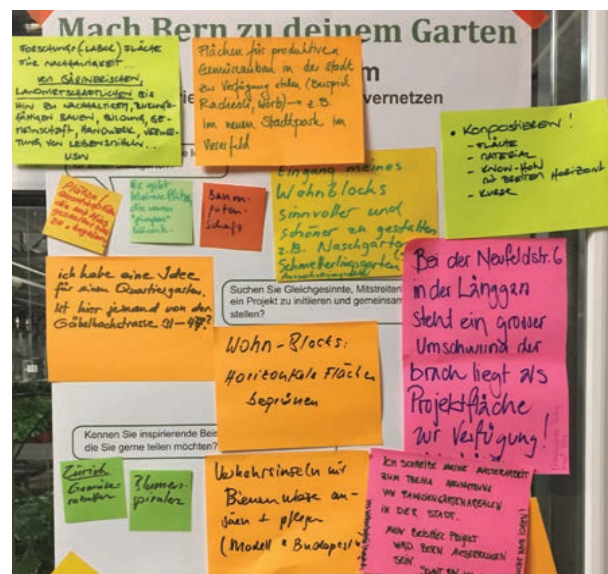 Mach Bern zu deinem Garten
vernetzen
FORSCHUNGS (LABOR) FLÄCHE
FÜR NACHHALTIGKEIT...
VON GÄRTNERISCHEN,
LANDWIRTSCHAFTLICHEN BIS
HIN ZU NACHHALTIGEM,
BAUEN, BILDUNG, GE-
MEINSCHAFT, HANDWERK, VERWER-
TUNG VON LEBENSMITTELN...
USW
Flächen für produktiven
Gemüseanbau in der Stadt
zu Verfügung stellen (Beispiel
Radiesli, Worb) → z.B.
im neuen Stadtpark im
Viererfeld
• Kompostieren!
- FLÄCHE
- MATERIAL
- KNOW-HOW
MIT BREITEM HORIZONT
- KURSE
Es gibt
Baum-
paten-
schaft
Eingang meines
Wohnblocks
sinnvoller und
schöner zu gestalten
z.B. Naschgarten
Schmetterlingsgarten
ich habe eine Idee
für einen Quartiergarten.
Ist hier jemand von der
Gäbelbachstrasse
Suchen Sie Gleichgesinnte, Mitstreiten
ein Projekt zu initiieren und gemeinsam
stellen?
Bei der Neufeldstr. 6
in der Länggass
steht ein grosser
Umschwung der
brach liegt als
Projektfläche
zur Verfügung!
Wohn-Blocks:
Horizontale Flächen
begrünen
Kennen Sie inspirierende Beis
die Sie gerne teilen möchten?
Zürich
Gemüse
Blumen-
spiralen
Verkehrsinseln mit
Bienenweide an-
säen + pflegen
(Modell "Budapest")
ICH SCHREIBE MEINE MASTERARBEIT
ZUM THEMA
VON FAMILIENGARTENAREALEN
IN DER STADT.
MEIN PROJEKT
WIRD BERN
SEIN.